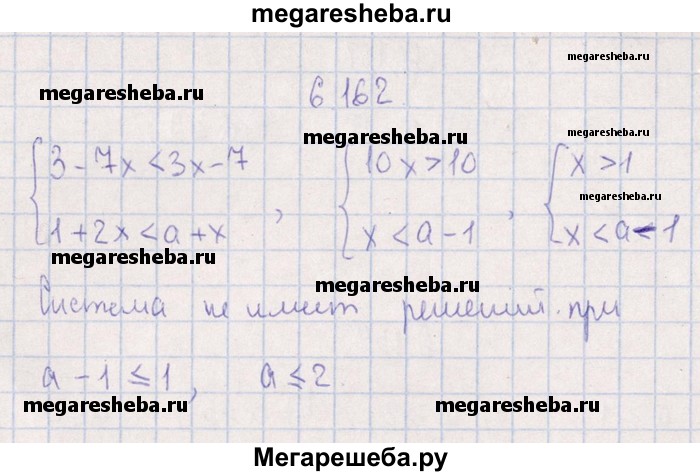 megaresheba.ru
megaresheba.ru
megaresheba.ru
6 162
megaresheba.ru
megaresheba.ru
{ 3 - 7x < 3x - 7 { 10x > 10 { x > 1
megaresheba.ru
1 + 2x < a + x , x < a - 1 , x < a - 1
megaresheba.ru
megaresheba.ru
Система не имеет решений при
a - 1 ≤ 1, a ≤ 2
megaresheba.ru
megaresheba.ru
Мегарешеба.ру